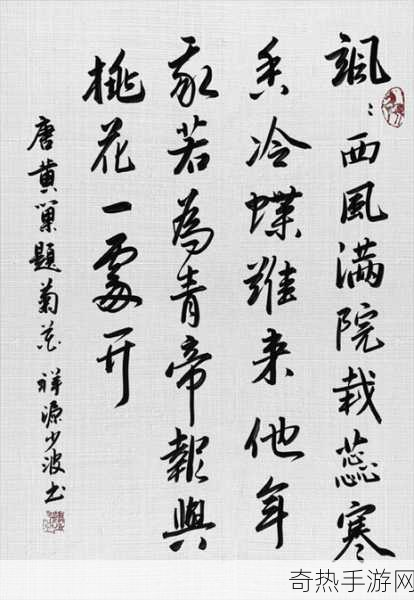 颯〻西風满院栽蕊寒
香冷蝶難来他年
我若為青帝報與
桃花一處开
唐黄巢題菊花 祥源少波书
奇热手游网